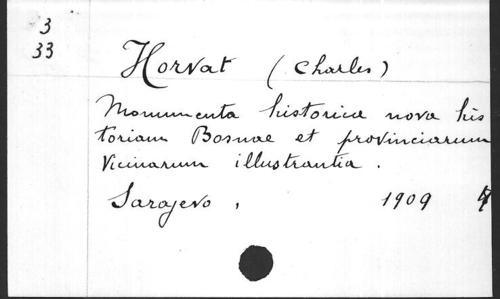 3
33
Horvat (Charles)
Monumenta historica nova his
toriam Bosnae et provinciarum
vicinarum illustrantia.
Sarajevo, 1909